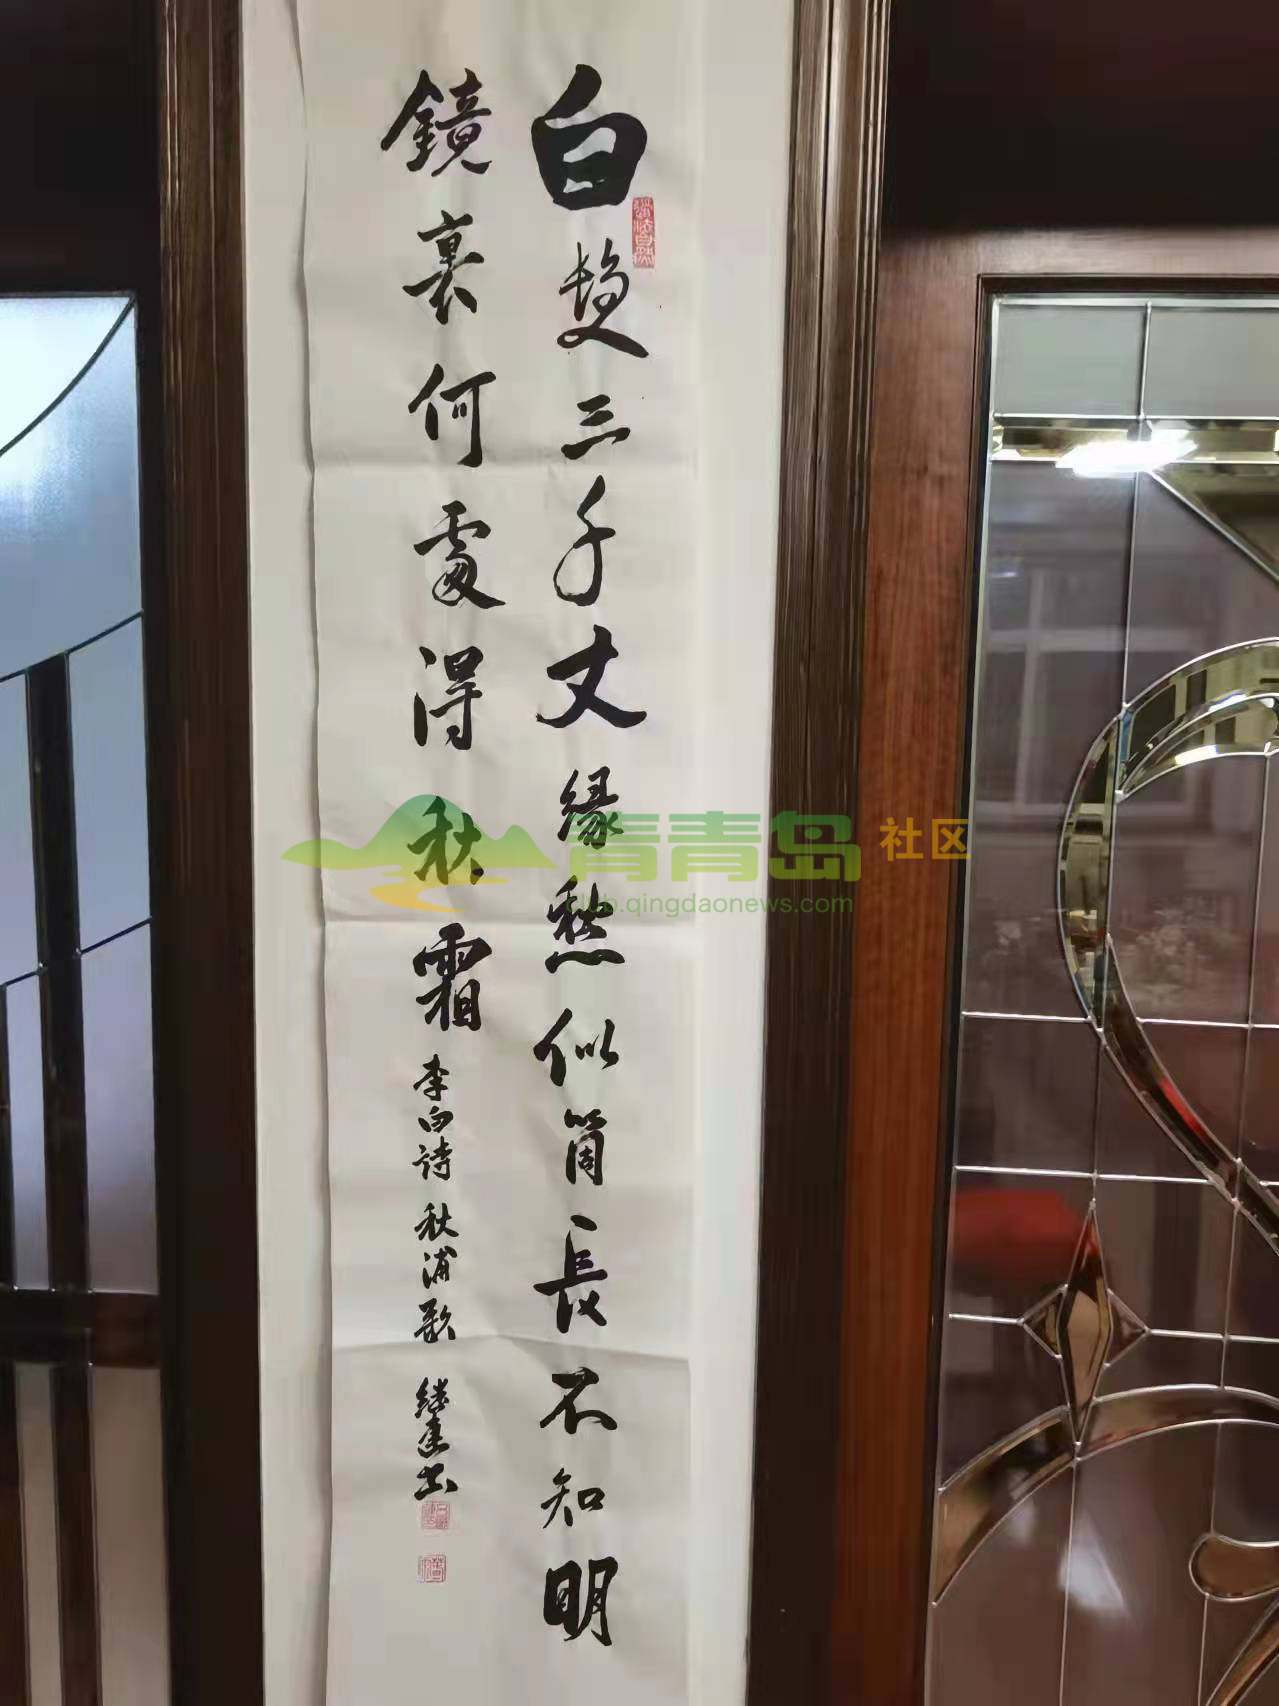 白髮三千丈緣愁似箇長不知明
鏡裏何處得秋霜
李白詩 秋浦歌 继建书
道法自然
青青岛 社区
club.qingdaonews.com